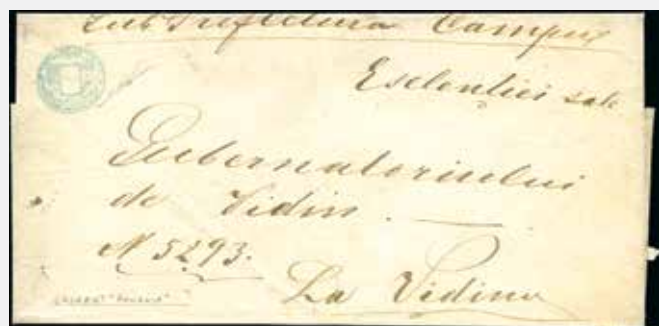 SubPrefectura Campu
Esclentiei sale
Gubernatoriului
de Vidin.
N 5293.
La Vidinu